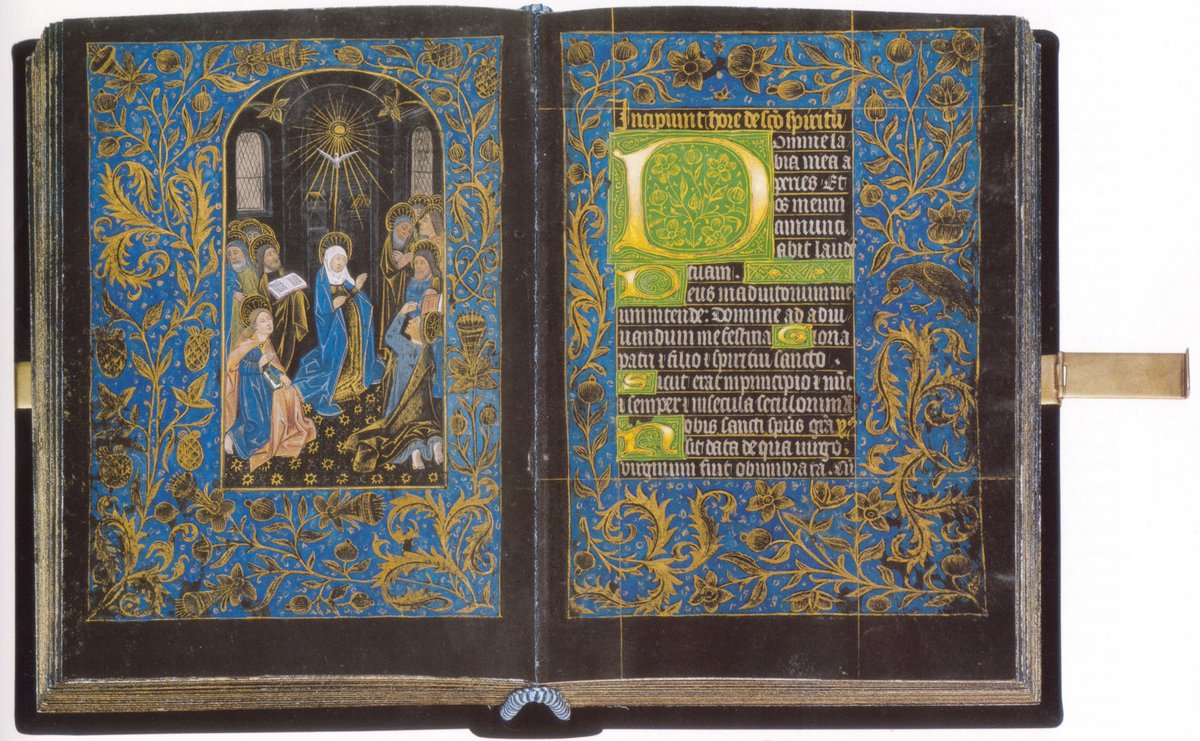 Incipiunt hore de sco spiritu
Domine la
bia mea a
peries Et
os meum
annunci
abit laudē
tuam.
Deus in adiutorium me
um intende: Domine ad adiu
uandum me festina Gloria
patri ⁊ filio ⁊ spiritui sancto.
Sicut erat in principio ⁊ nūc
⁊ semper ⁊ in secula seculorum a
Nobis sancti spūs gra
sit data de qua uirgo
virginum fuit obumbrata. Cū